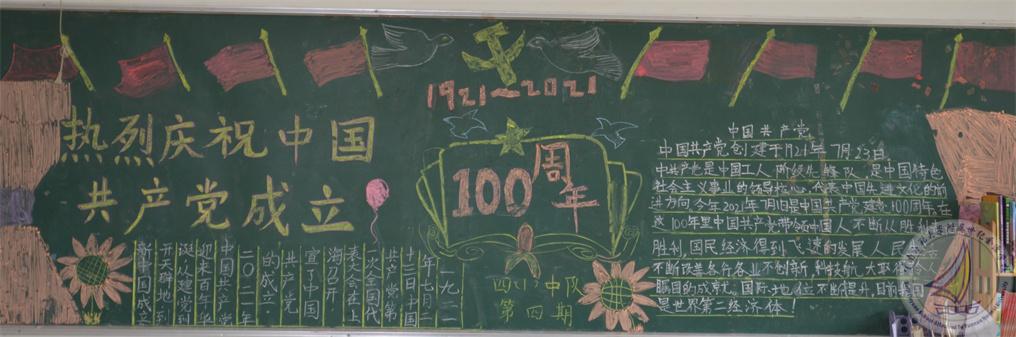 1921~2021
热烈庆祝中国
共产党成立
100周年
一九二一
年七月二
十三日中国
共产党第
一次全国代
表大会在上
海召开
宣了中国
共产党
的成立.
二〇二一年
中国共产党
迎来百年华
诞.从建党到
开天辟地到
新中国成立
四(1)中队
第四期
中国共产党
中国共产党创建于1921年7月23日
中共产党是中国工人阶级先锋队,是中国特色
社会主义事业的领导核心,代表中国先进文化的前
进方向.今年2021年7月1日是中国共产党建党100周年.在
这100年里中国共产党带领中国人不断从胜利
胜利,国民经济得到飞速的发展人民
不断改善各行各业不创新,科技航大取得令人
瞩目的成就.国际地位不断提升,目前
是世界第二经济体!